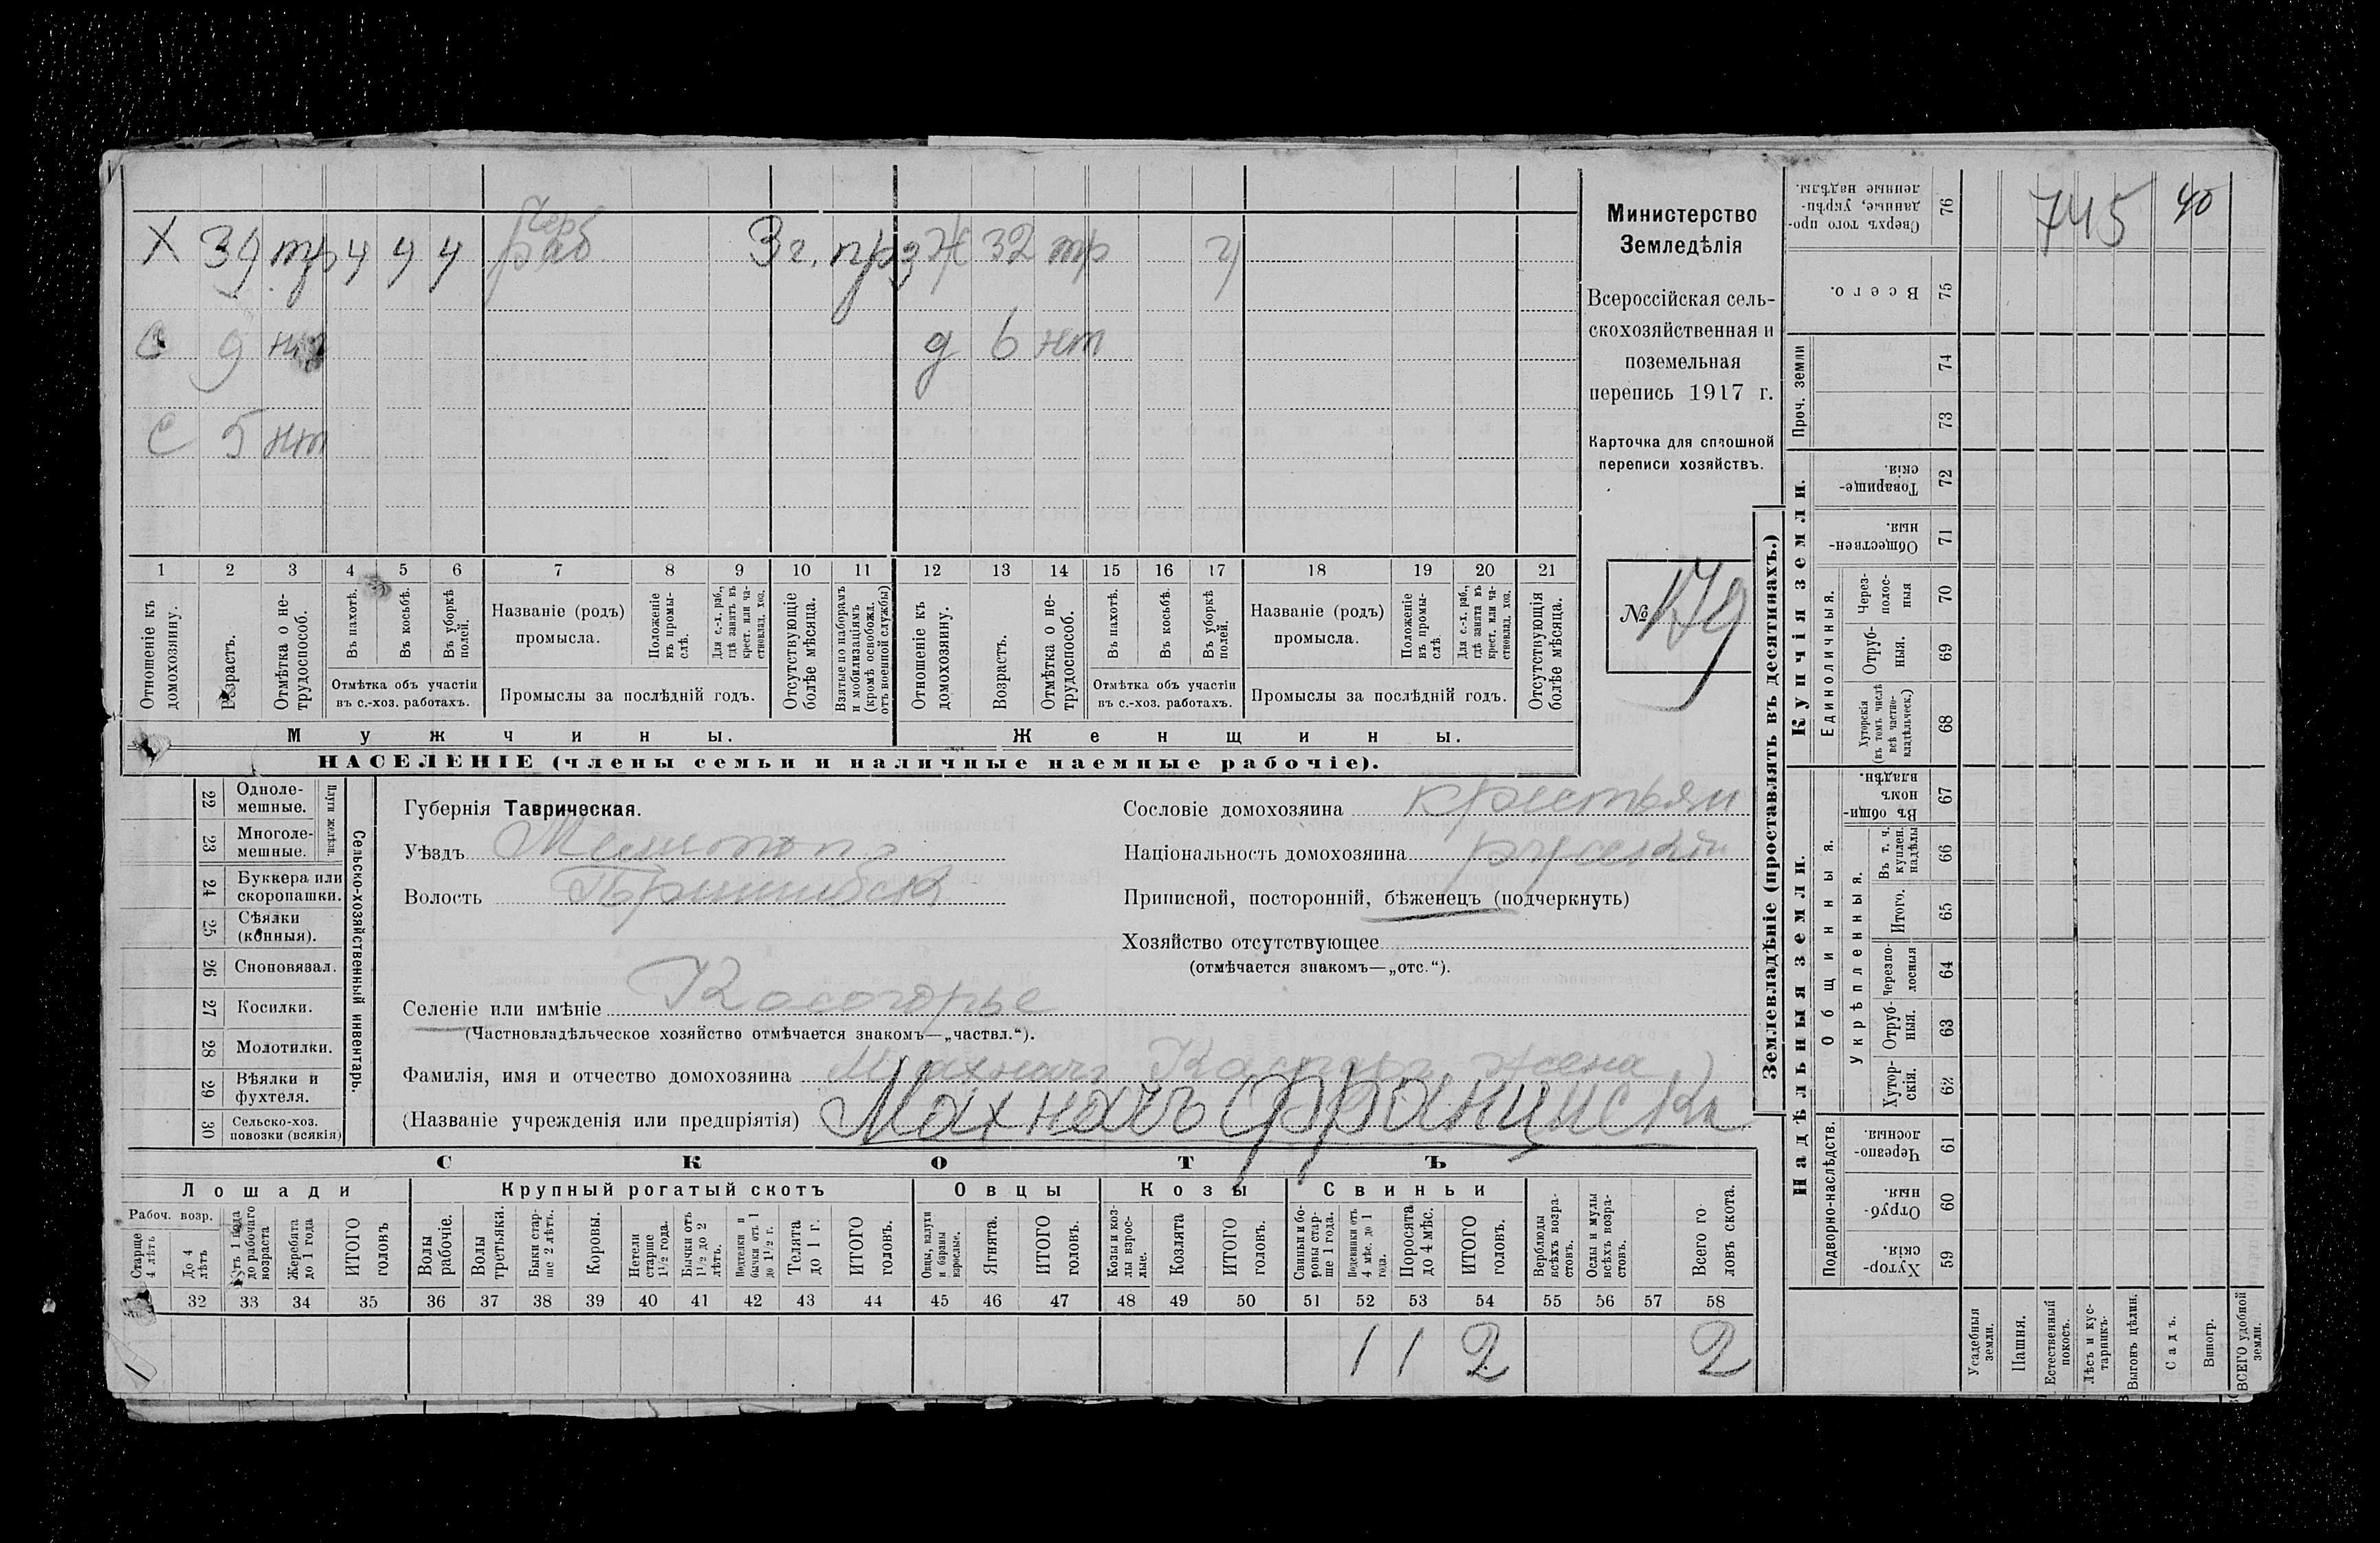 Черн
Х 39 тр у у у раб 3 г. прз Ж 32 тр у
С 9 нт д 6 нт
С 5 нт
1 2 3 4 5 6 7 8 9 10 11 12 13 14 15 16 17 18 19 20 21
Отношеніе къ домохозяину.
Возрастъ.
Отмѣтка о не-трудоспособ.
Въ пахотѣ.
Въ косьбѣ.
Въ уборкѣ полей.
Отмѣтка объ участіи въ с.-хоз. работахъ.
Названіе (родъ) промысла.
Положеніе въ промы-слѣ.
Для с.-х. раб., гдѣ занятъ въ крест. или ча-стновлад. хоз.
Промыслы за послѣдній годъ.
Отсутствующіе болѣе мѣсяца.
Взятые по наборамъ и мобилизаціямъ (кромѣ освобожд. отъ военной службы)
Отношеніе къ домохозяину.
Возрастъ.
Отмѣтка о не-трудоспособ.
Въ пахотѣ.
Въ косьбѣ.
Въ уборкѣ полей.
Отмѣтка объ участіи въ с.-хоз. работахъ.
Названіе (родъ) промысла.
Положеніе въ промы-слѣ.
Для с.-х. раб., гдѣ занята въ крест. или ча-стновлад. хоз.
Промыслы за послѣдній годъ.
Отсутствующія болѣе мѣсяца.
Мужчины. Женщины.
НАСЕЛЕНІЕ (члены семьи и наличные наемные рабочіе).
Министерство
Земледѣлія
Всероссійская сель-
скохозяйственная и
поземельная
перепись 1917 г.
Карточка для сплошной
переписи хозяйствъ.
№ 179
22 Одноле-мешные.
23 Многоле-мешные.
Плуги желѣзн.
24 Буккера или скоропашки.
25 Сѣялки (конныя).
26 Сноповязал.
27 Косилки.
28 Молотилки.
29 Вѣялки и фухтеля.
30 Сельско-хоз. повозки (всякія)
Сельско-хозяйственный инвентарь.
Губернія Таврическая.
Уѣздъ Мелитоп
Волость Пришибск
Селеніе или имѣніе Косогорье
(Частновладѣльческое хозяйство отмѣчается знакомъ—„частвл.“).
Фамилія, имя и отчество домохозяина Махначъ жена
(Названіе учрежденія или предпріятія) Махначъ Францисk
Сословіе домохозяина крестьян
Національность домохозяина русскій
Приписной, посторонній, бѣженецъ (подчеркнуть)
Хозяйство отсутствующее
(отмѣчается знакомъ—„отс.“).
СКОТЪ
Лошади Крупный рогатый скотъ Овцы Козы Свиньи
Рабоч. возр.
Старше 4 лѣтъ
До 4 лѣтъ
Отъ 1 года до рабочаго возраста
Жеребята до 1 года
ИТОГО головъ
Волы рабочіе.
Волы третьяки.
Быки стар-ше 2 лѣтъ.
Коровы.
Нетели старше 1½ года.
Бычки отъ 1½ до 2 лѣтъ.
Подтелки и бычки отъ 1 до 1½ г.
Телята до 1 г.
ИТОГО головъ.
Овцы, валухи и бараны взрослые.
Ягнята.
ИТОГО головъ.
Козы и коз-лы взрос-лые.
Козлята
ИТОГО головъ.
Свиньи и бо-ровы стар-ше 1 года.
Подсвинки отъ 4 мѣс. до 1 года.
Поросята до 4 мѣс.
ИТОГО головъ.
Верблюды всѣхъ возра-стовъ.
Ослы и мулы всѣхъ возра-стовъ.
Всего го-ловъ скота.
32 33 34 35 36 37 38 39 40 41 42 43 44 45 46 47 48 49 50 51 52 53 54 55 56 57 58
1 1 2 2
Землевладѣніе (проставлять въ десятинахъ.)
745 40
76 Сверхъ того про-данные, укрѣп-ленные надѣлы.
75 Всего.
Проч. земли
74
73
Купчія земли.
72 Товарище-скія.
71 Обществен-ныя.
Единоличныя.
70 Через-полос-ныя
69 Отруб-ныя.
68 Хуторскія (въ томъ числѣ всѣ частно-владѣльческ.)
Надѣльныя земли.
Общинныя.
67 Въ общи-номъ владѣн.
Укрѣпленныя.
66 Въ т. ч. куплен. надѣлы
65 Итого.
64 Черезпо-лосныя
63 Отруб-ныя.
62 Хутор-скія.
Подворно-наслѣдств.
61 Черезпо-лосныя.
60 Отруб-ныя.
59 Хутор-скія.
Усадебныя земли.
Пашня.
Естественный покосъ.
Лѣсъ и ку-старникъ.
Выгонъ цѣлин.
Садъ.
Виногр.
ВСЕГО удобной земли.